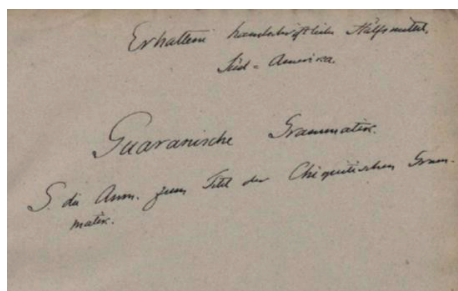 Erhaltene handschriftliche Hülfsmittel.
Süd-America.
Guaranische Grammatik.
S. die Anm. zum Titel der Chiquitischen Gram-
matik.